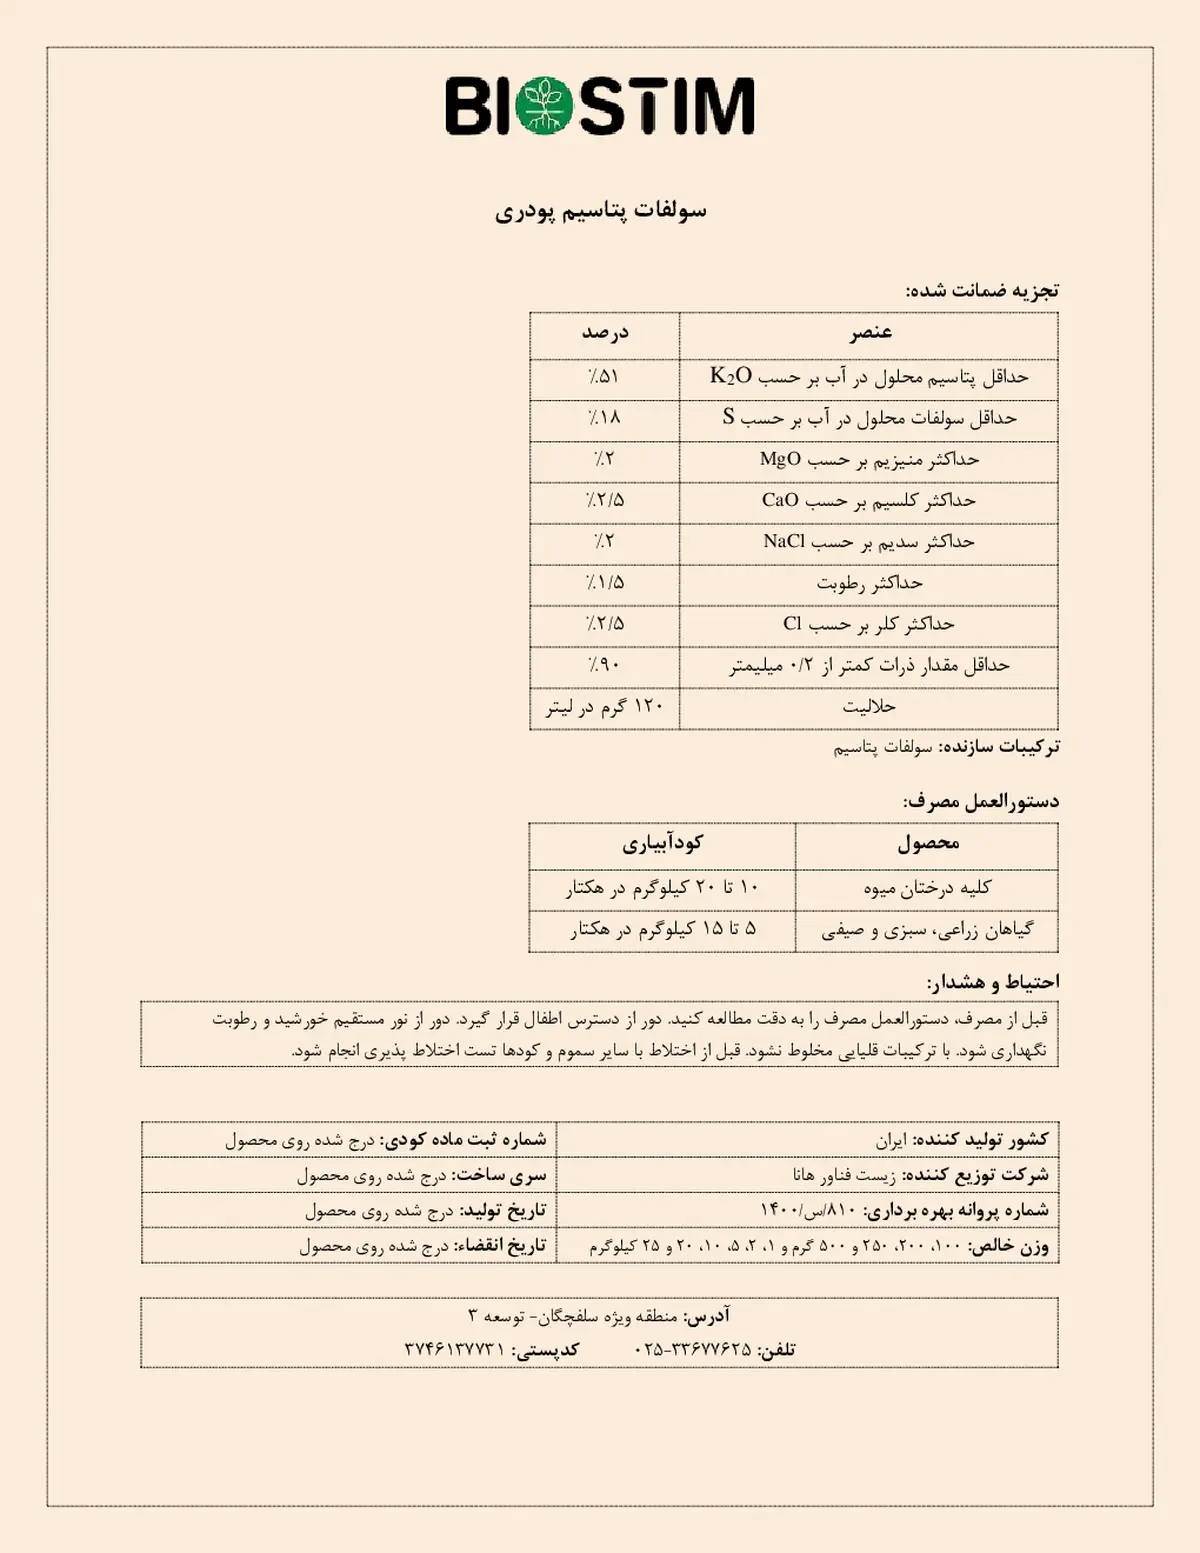 BIOSTIM
سولفات پتاسیم پودری
تجزیه ضمانت شده:
عنصر درصد
حداقل پتاسیم محلول در آب بر حسب K₂O ٪۵۱
حداقل سولفات محلول در آب بر حسب S ٪۱۸
حداکثر منیزیم بر حسب MgO ٪۲
حداکثر کلسیم بر حسب CaO ٪۲/۵
حداکثر سدیم بر حسب NaCl ٪۲
حداکثر رطوبت ٪۱/۵
حداکثر کلر بر حسب Cl ٪۲/۵
حداقل مقدار ذرات کمتر از ۰/۲ میلیمتر ٪۹۰
حلالیت ۱۲۰ گرم در لیتر
ترکیبات سازنده: سولفات پتاسیم
دستورالعمل مصرف:
محصول کودآبیاری
کلیه درختان میوه ۱۰ تا ۲۰ کیلوگرم در هکتار
گیاهان زراعی، سبزی و صیفی ۵ تا ۱۵ کیلوگرم در هکتار
احتیاط و هشدار:
قبل از مصرف، دستورالعمل مصرف را به دقت مطالعه کنید. دور از دسترس اطفال قرار گیرد. دور از نور مستقیم خورشید و رطوبت
نگهداری شود. با ترکیبات قلیایی مخلوط نشود. قبل از اختلاط با سایر سموم و کودها تست اختلاط پذیری انجام شود.
کشور تولید کننده: ایران شماره ثبت ماده کودی: درج شده روی محصول
شرکت توزیع کننده: زیست فناور هانا سری ساخت: درج شده روی محصول
شماره پروانه بهره برداری: ۸۱۰/س/۱۴۰۰ تاریخ تولید: درج شده روی محصول
وزن خالص: ۱۰۰، ۲۰۰، ۲۵۰ و ۵۰۰ گرم و ۱، ۲، ۵، ۱۰، ۲۰ و ۲۵ کیلوگرم تاریخ انقضاء: درج شده روی محصول
آدرس: منطقه ویژه سلفچگان- توسعه ۳
تلفن: ۳۳۶۷۷۶۲۵-۰۲۵ کدپستی: ۳۷۴۶۱۳۷۷۳۱